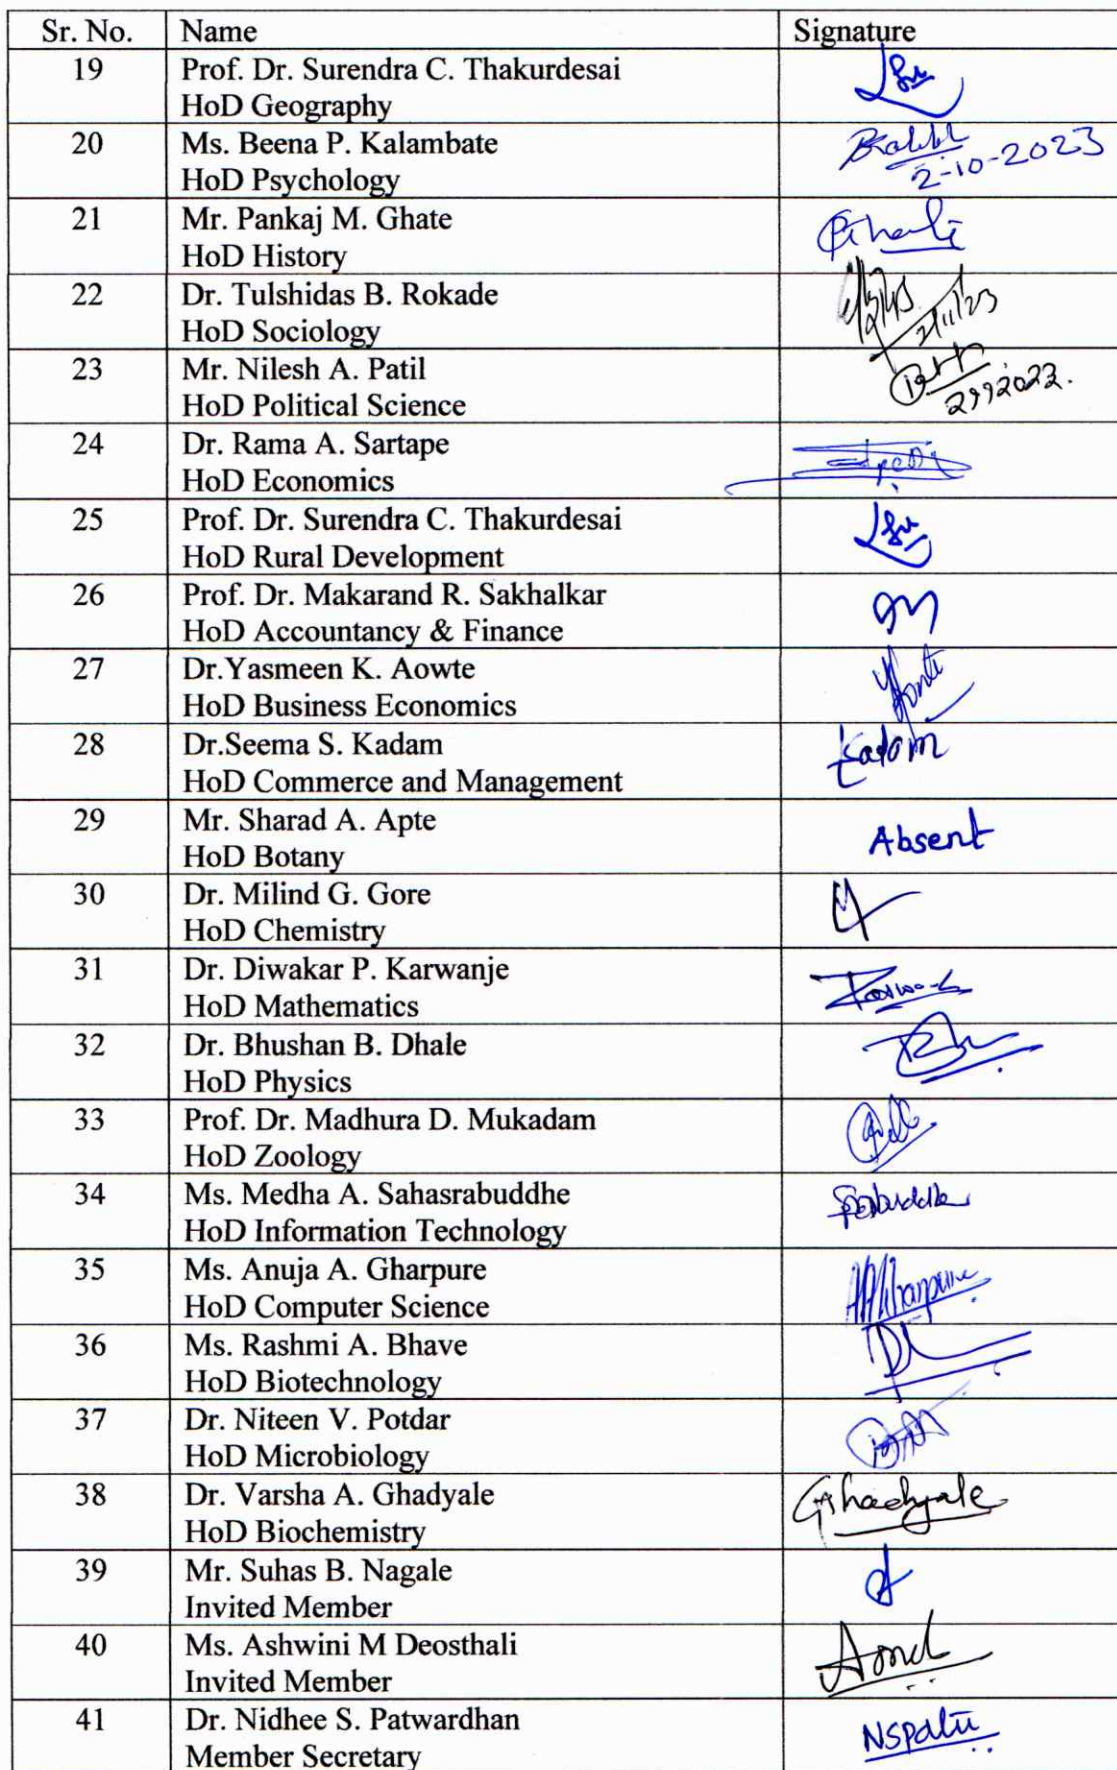 Sr. No. Name Signature
19 Prof. Dr. Surendra C. Thakurdesai
HoD Geography
20 Ms. Beena P. Kalambate
HoD Psychology 2-10-2023
21 Mr. Pankaj M. Ghate
HoD History
22 Dr. Tulshidas B. Rokade
HoD Sociology 2/11/23
23 Mr. Nilesh A. Patil
HoD Political Science
24 Dr. Rama A. Sartape
HoD Economics
25 Prof. Dr. Surendra C. Thakurdesai
HoD Rural Development
26 Prof. Dr. Makarand R. Sakhalkar
HoD Accountancy & Finance
27 Dr.Yasmeen K. Aowte
HoD Business Economics
28 Dr.Seema S. Kadam Kadam
HoD Commerce and Management
29 Mr. Sharad A. Apte Absent
HoD Botany
30 Dr. Milind G. Gore
HoD Chemistry
31 Dr. Diwakar P. Karwanje
HoD Mathematics
32 Dr. Bhushan B. Dhale
HoD Physics
33 Prof. Dr. Madhura D. Mukadam
HoD Zoology
34 Ms. Medha A. Sahasrabuddhe
HoD Information Technology
35 Ms. Anuja A. Gharpure
HoD Computer Science
36 Ms. Rashmi A. Bhave
HoD Biotechnology
37 Dr. Niteen V. Potdar
HoD Microbiology
38 Dr. Varsha A. Ghadyale Ghadyale
HoD Biochemistry
39 Mr. Suhas B. Nagale
Invited Member
40 Ms. Ashwini M Deosthali
Invited Member
41 Dr. Nidhee S. Patwardhan
Member Secretary